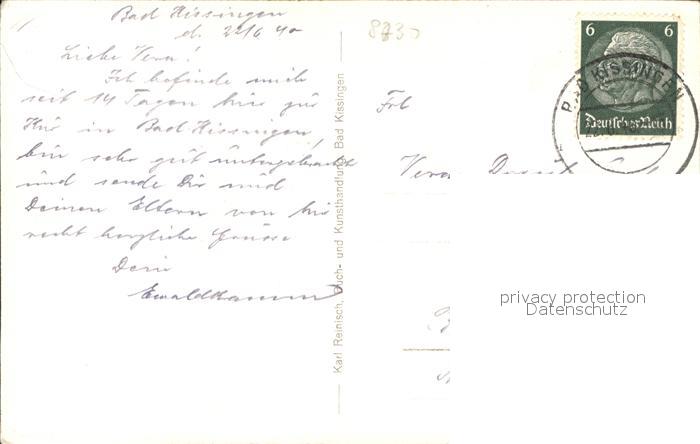 Bad Kissingen
d. 22/6 40
Liebe Vera!
Ich befinde mich
seit 14 Tagen hier zur
Kur in Bad Kissingen,
bin sehr gut untergebracht
und sende Dir und
Deinen Eltern von hier
recht herzliche Grüsse
Dein
Karl Reinisch, Buch- und Kunsthandlung, Bad Kissingen
6 6
Deutsches Reich
BAD KISSINGEN
Frl
Vera
privacy protection
Datenschutz